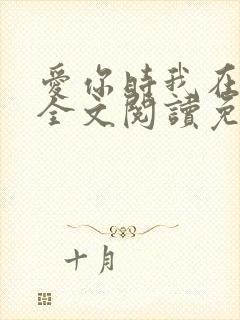 愛你時我在
全文閱讀免
十月